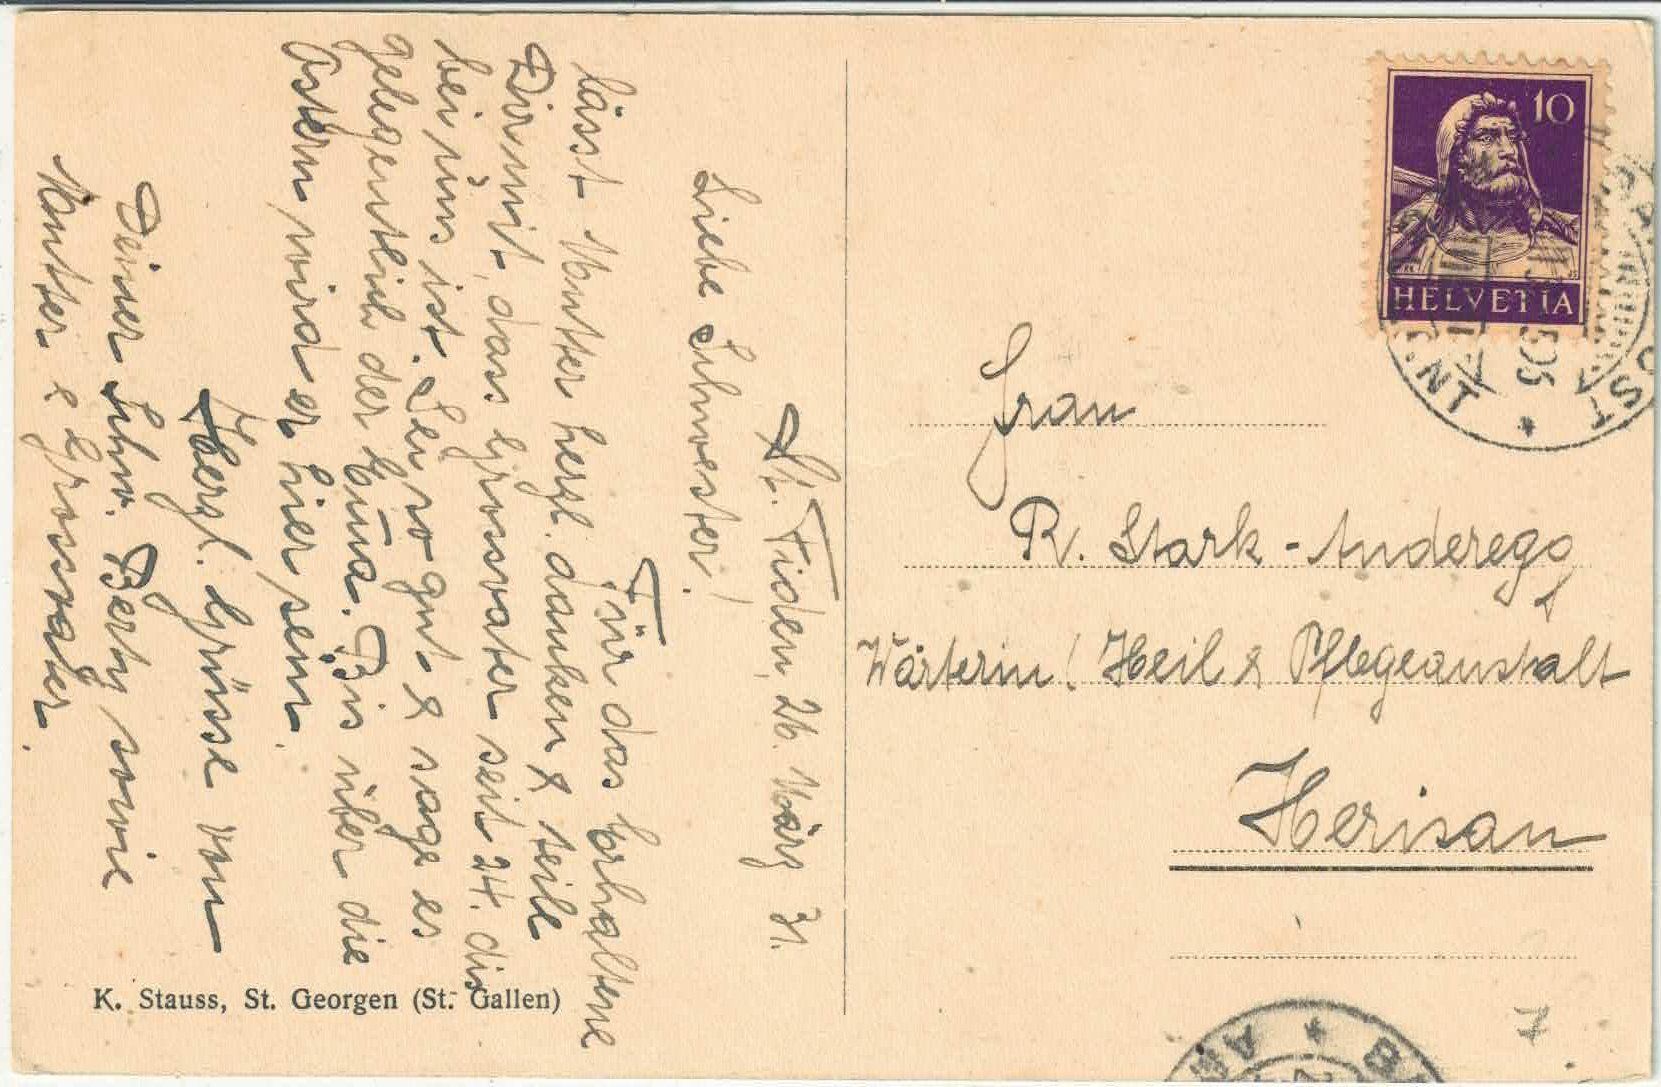 St. Fiden, 26. März 31.
Liebe Schwester!
Für das Erhaltene
lässt Mutter herzl. danken & teile
Dir mit, dass Grossvater seit 24. dis
bei uns ist. Sei so gut & sage es
gelegentlich der Emma. Bis über die
Ostern wird er hier sein.
Herzl. Grüsse von
Deiner Schw. Berty sowie
Mutter & Grossvater.
K. Stauss, St. Georgen (St. Gallen)
10
HELVETIA
Frau
R. Stark-Anderegg
Wärterin! Heil & Pflegeanstalt
Herisau